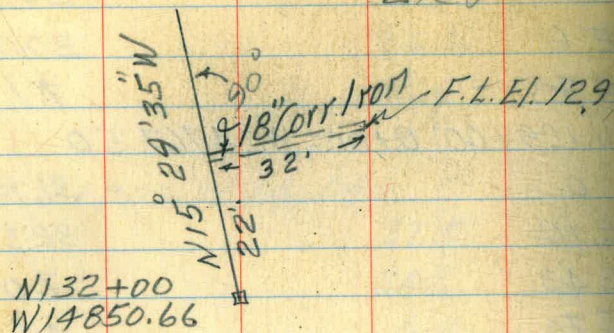 N15° 29' 35" W
90°
18" Corr. Iron
F.L. El. 129
32'
22'
N132+00
W14850.66